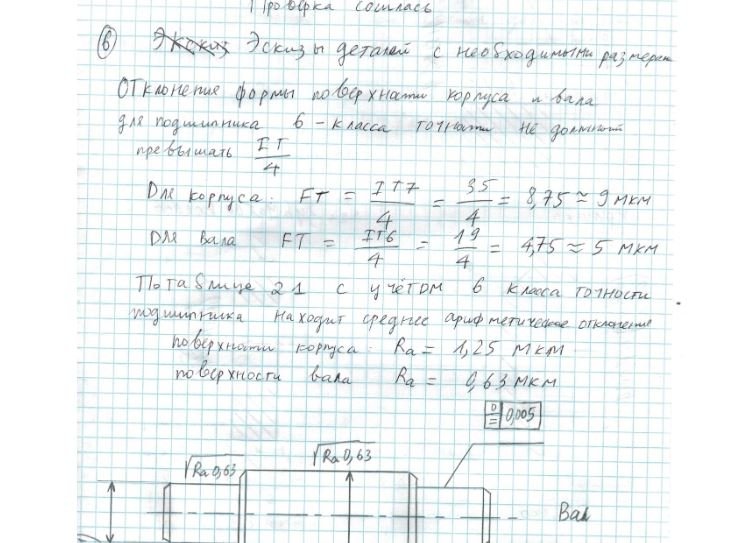 Проверка сошлась
6 Экскиз Эскизы деталей с необходимыми размерам
Отклонение формы поверхности корпуса и вала
для подшипника 6-класса точности не должны
превышать IT/4
Для корпуса: FT = IT7/4 = 35/4 = 8,75 ≈ 9 мкм
Для вала FT = IT6/4 = 19/4 = 4,75 ≈ 5 мкм
По таблице 21 с учётом 6 класса точности
подшипника находит среднее арифметическое отклонение
поверхности корпуса: Ra = 1,25 мкм
поверхности вала Ra = 0,63 мкм
0,005
√Ra 0,63 √Ra 0,63
Вал